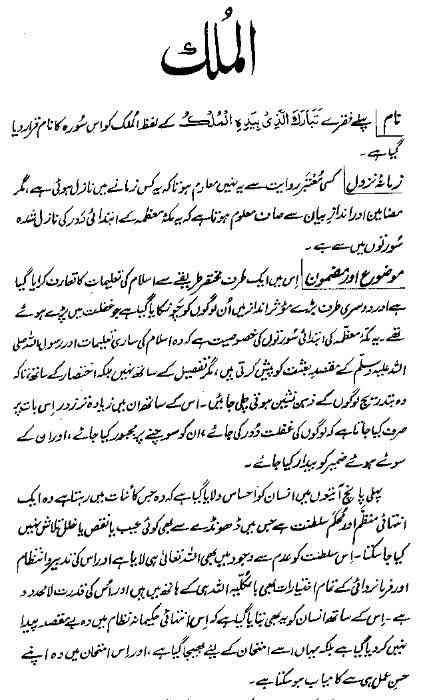 الملك
نام پہلے فقرے تَبَارَكَ الَّذِىْ بِيَدِهِ الْمُلْكُ کے لفظ الملک کو اس سُورہ کا نام قرار دیا
گیا ہے۔
زمانۂ نزول کسی مُعْتَبَر روایت سے یہ نہیں معلوم ہوتا کہ یہ کس زمانے میں نازل ہوئی ہے، مگر
مضامین اور اندازِ بیان سے صاف معلوم ہوتا ہے کہ یہ مکۂ معظمہ کے ابتدائی دَور کی نازل شدہ
سُورتوں میں سے ہے۔
موضوع اور مضمون اِس میں ایک طرف مختصر طریقے سے اسلام کی تعلیمات کا تعارف کرایا گیا
ہے اور دوسری طرف بڑے مؤثر انداز میں اُن لوگوں کو چونکایا گیا ہے جو غفلت میں پڑے ہوئے
تھے۔ یہ مکۂ معظمہ کی ابتدائی سُورتوں کی خصوصیت ہے کہ وہ اسلام کی ساری تعلیمات اور رسول اللہ صلی
اللہ علیہ وسلم کے مقصدِ بعثت کو پیش کرتی ہیں، مگر تفصیل کے ساتھ نہیں بلکہ اختصار کے ساتھ، تاکہ
وہ بتدریج لوگوں کے ذہن نشین ہوتی چلی جائیں۔ اس کے ساتھ ان میں زیادہ تر زور اِس بات پر
صرف کیا جاتا ہے کہ لوگوں کی غفلت دُور کی جائے، ان کو سوچنے پر مجبور کیا جائے، اور ان کے
سوئے ہوئے ضمیر کو بیدار کیا جائے۔
پہلی پانچ آیتوں میں انسان کو احساس دلایا گیا ہے کہ وہ جس کائنات میں رہتا ہے وہ ایک
انتہائی منظّم اور مُحکم سلطنت ہے جس میں ڈھونڈے سے بھی کوئی عیب یا نقص یا خلل تلاش نہیں
کیا جا سکتا۔ اِس سلطنت کو عدم سے وجود میں بھی اللہ تعالیٰ ہی لایا ہے اور اس کی تدبیر و انتظام
اور فرمانروائی کے تمام اختیارات بھی بالکلیہ اللہ ہی کے ہاتھ میں ہیں اور اُس کی قدرت لا محدود
ہے۔ اِس کے ساتھ انسان کو یہ بھی بتایا گیا ہے کہ اِس انتہائی حکیمانہ نظام میں وہ بے مقصد پیدا
نہیں کر دیا گیا ہے بلکہ یہاں اسے امتحان کے لیے بھیجا گیا ہے، اور اِس امتحان میں وہ اپنے
حسنِ عمل ہی سے کامیاب ہو سکتا ہے۔